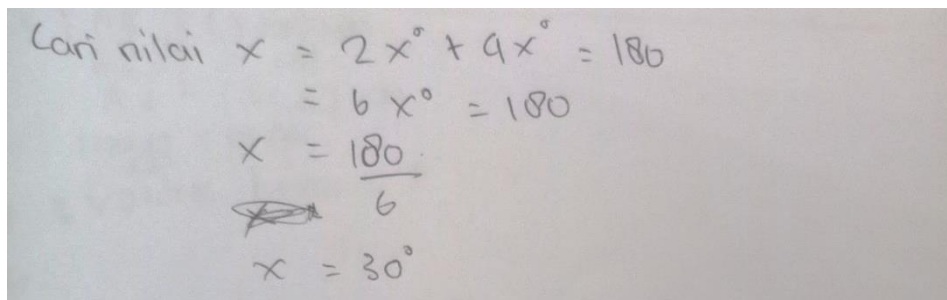 Cari nilai x = 2x° + 4x° = 180
= 6x° = 180
x = 180
6
x = 30°